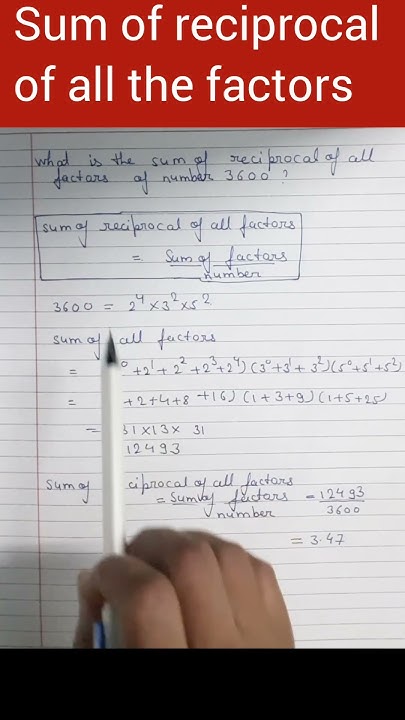 Sum of reciprocal
of all the factors
What is the sum of reciprocal of all
factors of number 3600?
Sum of reciprocal of all factors
= Sum of factors
number
3600 = 2⁴×3²×5²
Sum of all factors
= ⁰+2¹+2²+2³+2⁴)(3⁰+3¹+3²)(5⁰+5¹+5²)
= +2+4+8+16)(1+3+9)(1+5+25)
= 31×13×31
12493
Sum of ciprocal of all factors
= Sum of factors = 12493
number 3600
= 3.47